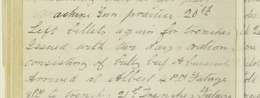 Machine Gun practice 20th
Left billets again for trenches
Issued with two days rations
consisting of bully beef & biscuits
Arrived at Albert 4 PM Fatigue